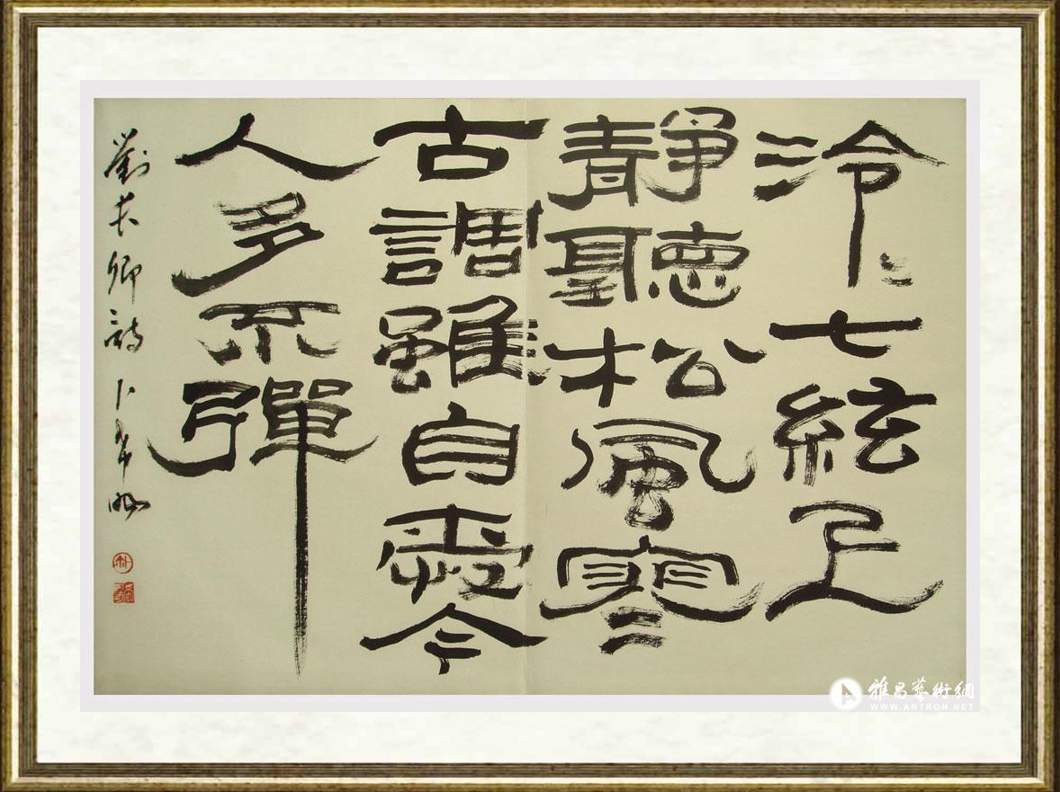 泠〻七絃上
靜聽松風寒
古調雖自愛今
人多不彈
劉長卿詩 卜希暘
雅昌藝術網
WWW.ARTRON.NET